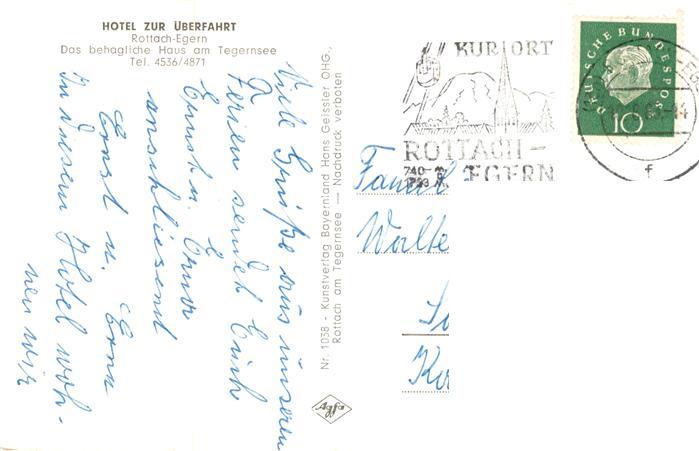 HOTEL ZUR ÜBERFAHRT
Rottach-Egern
Das behagliche Haus am Tegernsee
Tel. 4536/4871
Viele Grüße aus unseren
Ferien sendet Euch
Ernst u. Erna
anschliesend
Ernst u. Erna
In diesem Hotel woh-
nen wir
Nr. 1038 - Kunstverlag Bayernland Hans Geissler OHG.,
Rottach am Tegernsee — Nachdruck verboten
Agfa
KURORT
ROTTACH-
EGERN
740-
DEUTSCHE BUNDESPOST
10
f
Walte